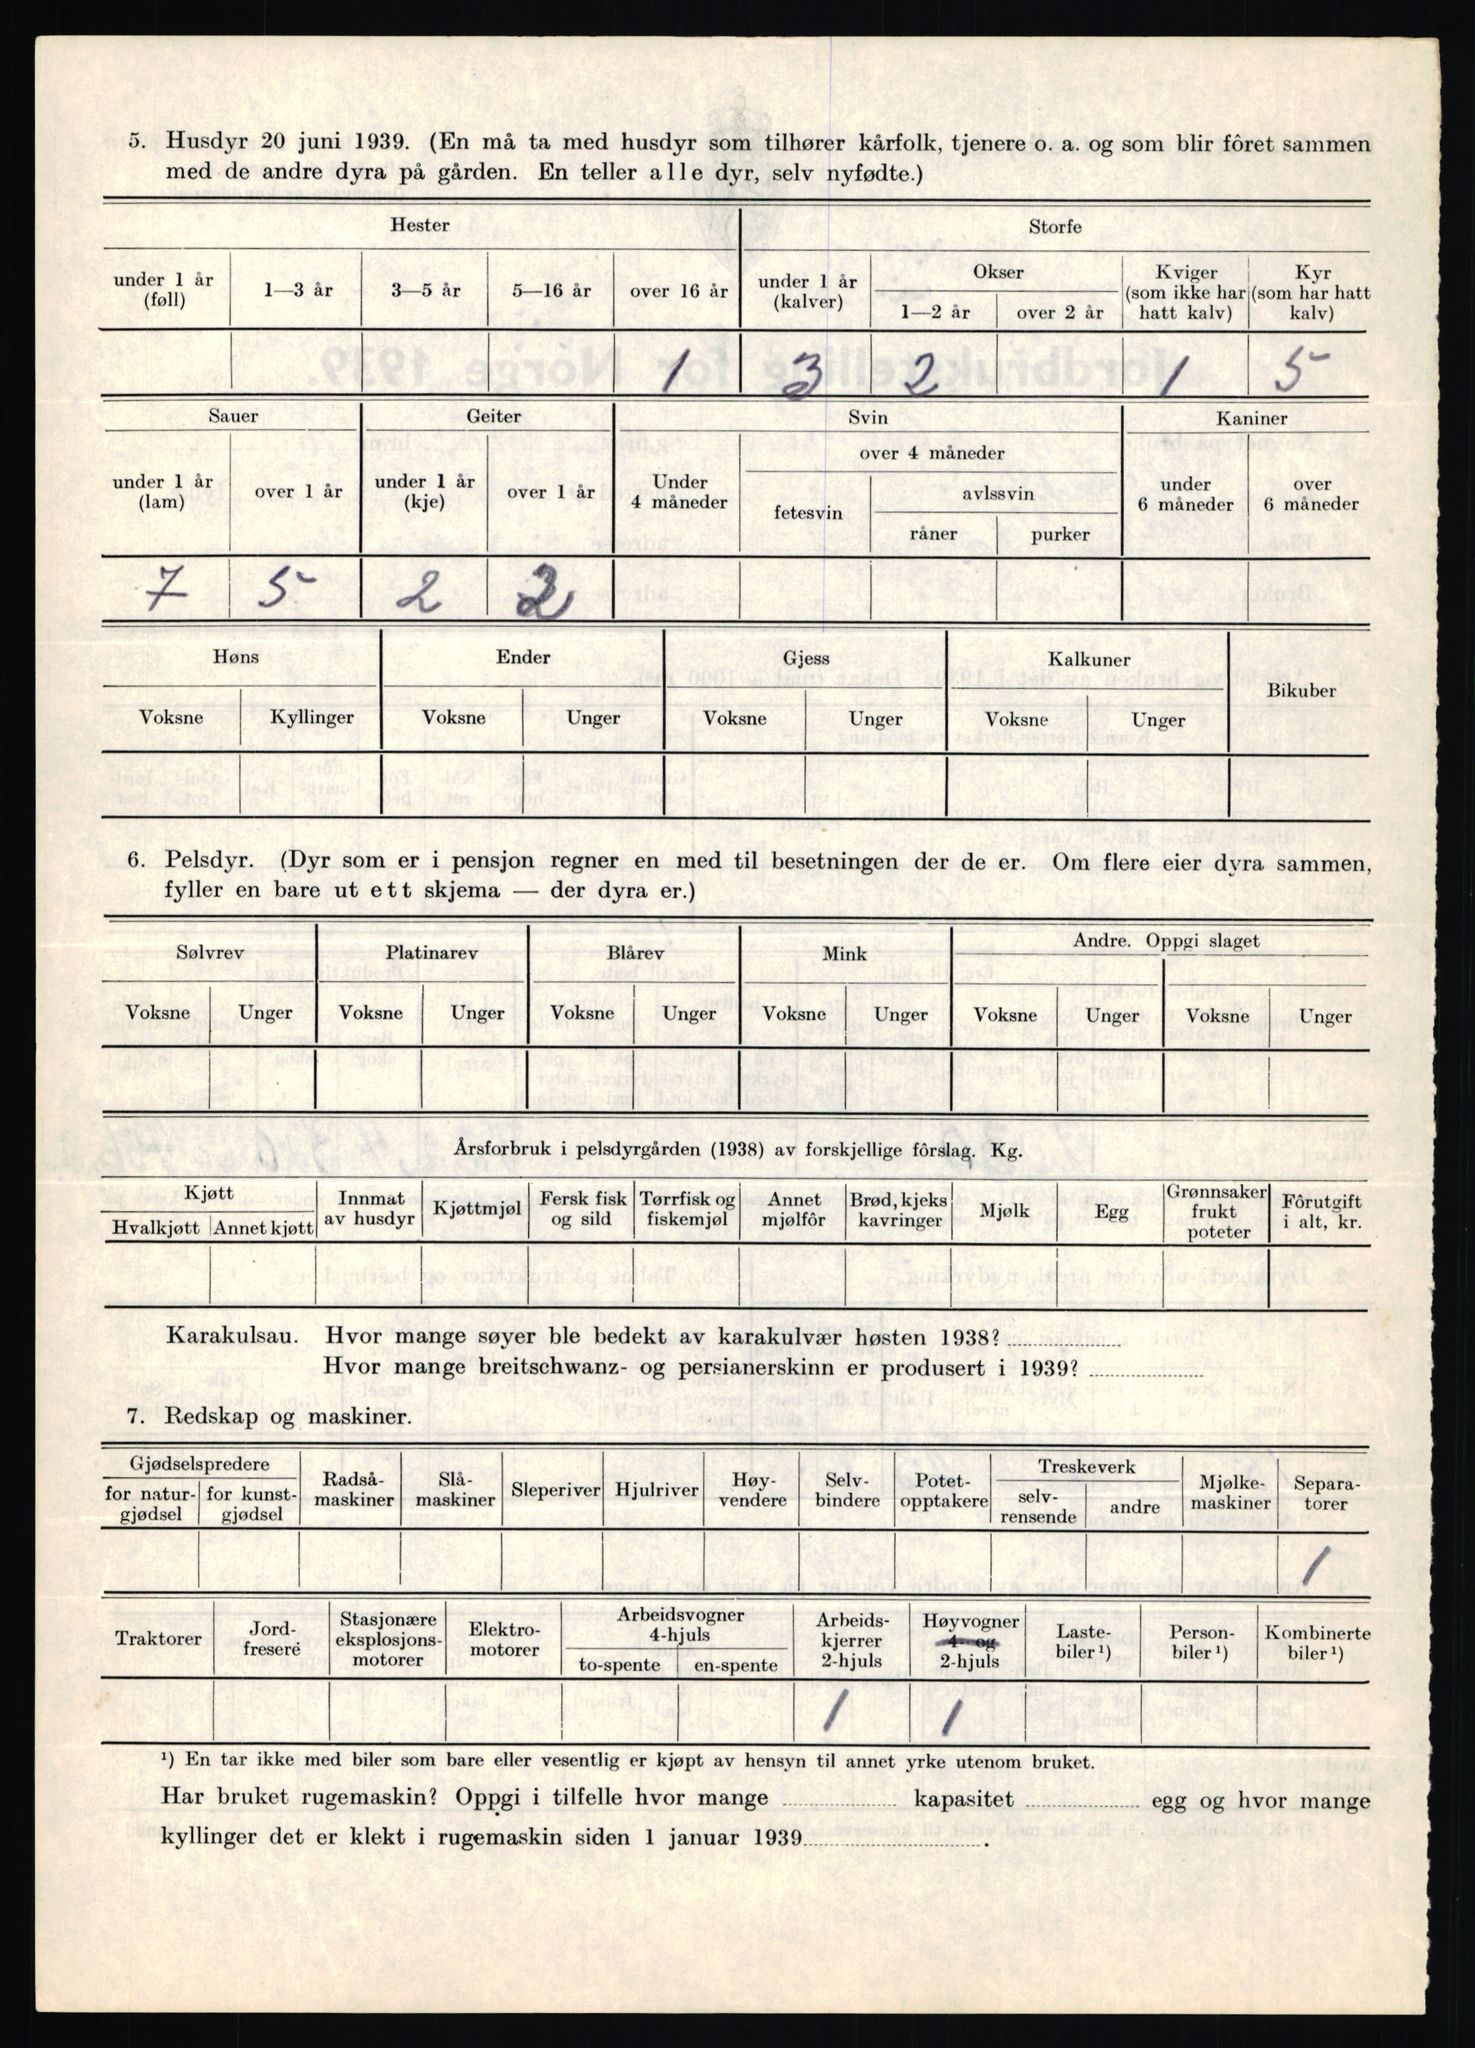 5. Husdyr 20 juni 1939. (En må ta med husdyr som tilhører kårfolk, tjenere o. a. og som blir fôret sammen
med de andre dyra på gården. En teller alle dyr, selv nyfødte.)
Hester Storfe
under 1 år (føll) 1—3 år 3—5 år 5—16 år over 16 år under 1 år (kalver) Okser 1—2 år over 2 år Kviger (som ikke har hatt kalv) Kyr (som har hatt kalv)
1 3 2 1 5
Sauer Geiter Svin Kaniner
under 1 år (lam) over 1 år under 1 år (kje) over 1 år Under 4 måneder over 4 måneder fetesvin avlssvin råner purker under 6 måneder over 6 måneder
7 5 2 2
Høns Ender Gjess Kalkuner Bikuber
Voksne Kyllinger Voksne Unger Voksne Unger Voksne Unger
6. Pelsdyr. (Dyr som er i pensjon regner en med til besetningen der de er. Om flere eier dyra sammen,
fyller en bare ut ett skjema — der dyra er.)
Sølvrev Platinarev Blårev Mink Andre. Oppgi slaget
Voksne Unger Voksne Unger Voksne Unger Voksne Unger Voksne Unger Voksne Unger
Årsforbruk i pelsdyrgården (1938) av forskjellige fôrslag. Kg.
Kjøtt Hvalkjøtt Annet kjøtt Innmat av husdyr Kjøttmjøl Fersk fisk og sild Tørrfisk og fiskemjøl Annet mjølfôr Brød, kjeks kavringer Mjølk Egg Grønnsaker frukt poteter Fôrutgift i alt, kr.
Karakulsau. Hvor mange søyer ble bedekt av karakulvær høsten 1938?
Hvor mange breitschwanz- og persianerskinn er produsert i 1939?
7. Redskap og maskiner.
Gjødselspredere for natur-gjødsel for kunst-gjødsel Radså-maskiner Slå-maskiner Sleperiver Hjulriver Høy-vendere Selv-bindere Potet-opptakere Treskeverk selv-rensende andre Mjølke-maskiner Separa-torer
1
Traktorer Jord-freseré Stasjonære eksplosjons-motorer Elektro-motorer Arbeidsvogner 4-hjuls to-spente en-spente Arbeids-kjerrer 2-hjuls Høyvogner 4- og 2-hjuls Laste-biler ¹) Person-biler ¹) Kombinerte biler ¹)
1 1
¹) En tar ikke med biler som bare eller vesentlig er kjøpt av hensyn til annet yrke utenom bruket.
Har bruket rugemaskin? Oppgi i tilfelle hvor mange kapasitet egg og hvor mange
kyllinger det er klekt i rugemaskin siden 1 januar 1939 .